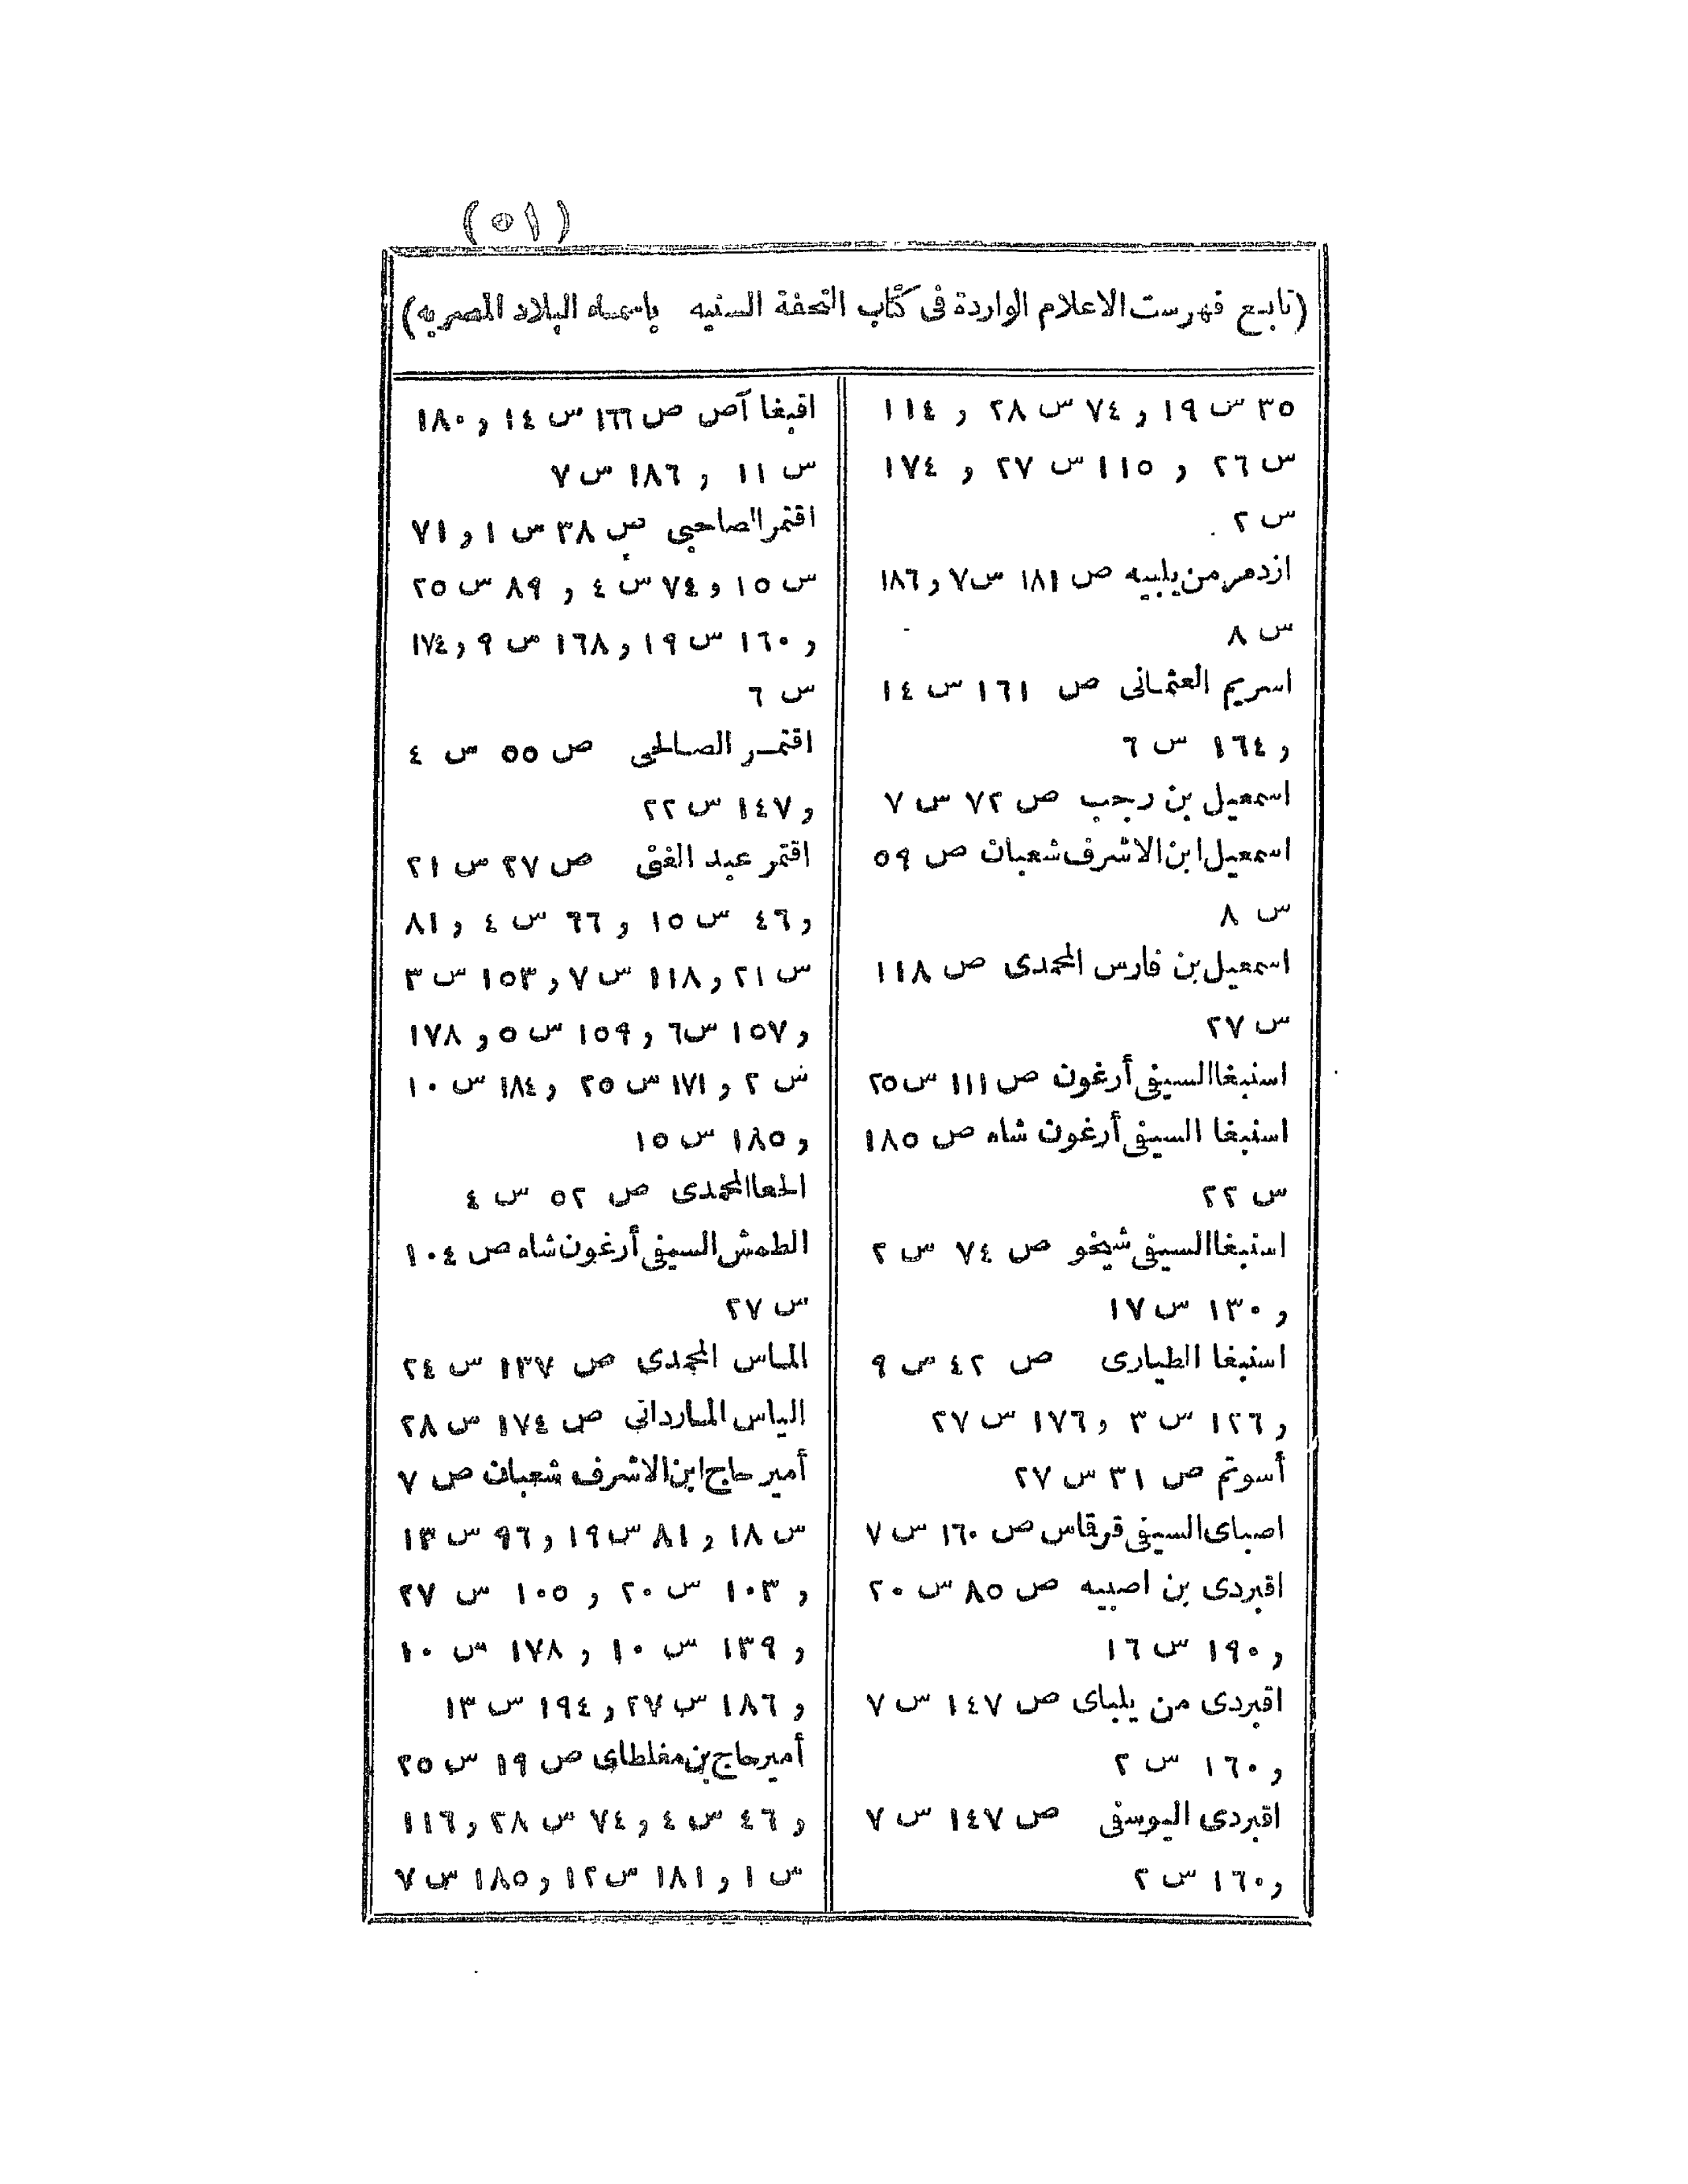 (٥١)
(تابع فهرست الاعلام الواردة فى كتاب التحفة السنيه باسماء البلاد المصريه)
٣٥ س ١٩ و ٧٤ س ٢٨ و ١١٤
س ٢٦ و ١١٥ س ٢٧ و ١٧٤
س ٢
ازدهر من يلبيه ص ١٨١ س ٧ و ١٨٦
س ٨
اسريم العثمانى ص ١٦١ س ١٤
و ١٦٤ س ٦
اسمعيل بن رجب ص ٧٢ س ٧
اسمعيل ابن الاشرف شعبان ص ٥٩
س ٨
اسمعيل بن فارس المحمدى ص ١١٨
س ٢٧
اسنبغا السيفى أرغون ص ١١١ س ٢٥
اسنبغا السيفى أرغون شاه ص ١٨٥
س ٢٢
اسنبغا السيفى شيخو ص ٧٤ س ٢
و ١٣٠ س ١٧
اسنبغا الطيارى ص ٤٢ س ٩
و ١٢٦ س ٣ و ١٧٦ س ٢٧
أسوتم ص ٣١ س ٢٧
اصباى السيفى قرقاس ص ١٦٠ س ٧
اقبردى بن اصبيه ص ٨٥ س ٢٠
و ١٩٠ س ١٦
اقبردى من يلباى ص ١٤٧ س ٧
و ١٦٠ س ٢
اقبردى اليوسفى ص ١٤٧ س ٧
و ١٦٠ س ٢
اقبغا آص ص ١٦٦ س ١٤ و ١٨٠
س ١١ و ١٨٦ س ٧
اقتمر الصاحبى ص ٣٨ س ١ و ٧١
س ١٥ و ٧٤ س ٤ و ٨٩ س ٢٥
و ١٦٠ س ١٩ و ١٦٨ س ٩ و ١٧٤
س ٦
اقتمر الصالحى ص ٥٥ س ٤
و ١٤٧ س ٢٢
اقتمر عبد الغنى ص ٢٧ س ٢١
و ٤٦ س ١٥ و ٦٦ س ٤ و ٨١
س ٢١ و ١١٨ س ٧ و ١٥٣ س ٣
و ١٥٧ س ٦ و ١٥٩ س ٥ و ١٧٨
س ٢ و ١٧١ س ٢٥ و ١٨٤ س ١٠
و ١٨٥ س ١٥
الحعا المحمدى ص ٥٢ س ٤
الطمش السيفى أرغون شاه ص ١٠٤
س ٢٧
الماس المحمدى ص ١٣٧ س ٢٤
الياس الماردانى ص ١٧٤ س ٢٨
أمير حاج ابن الاشرف شعبان ص ٧
س ١٨ و ٨١ س ١٩ و ٩٦ س ١٣
و ١٠٣ س ٢٠ و ١٠٥ س ٢٧
و ١٣٩ س ١٠ و ١٧٨ س ١٠
و ١٨٦ س ٢٧ و ١٩٤ س ١٣
أمير حاج بن مغلطاى ص ١٩ س ٢٥
و ٤٦ س ٤ و ٧٤ س ٢٨ و ١١٦
س ١ و ١٨١ س ١٢ و ١٨٥ س ٧